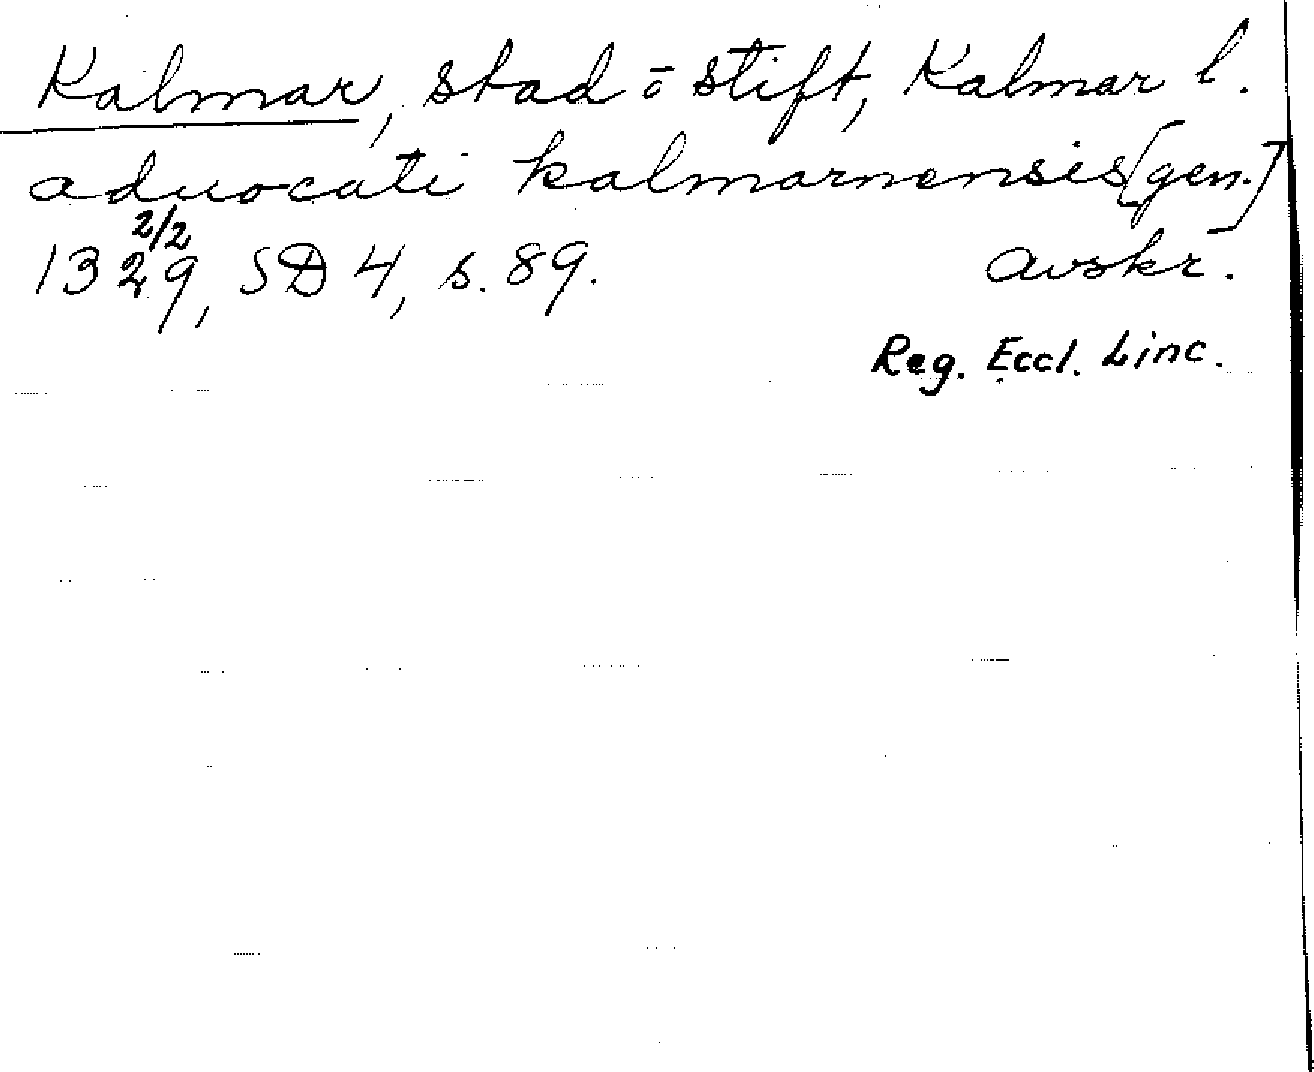 Kalmar, stad o stift, Kalmar l.
aduocati kalmarnensis [gen.]
2/2
1329, SD 4, s. 89. avskr.
Reg. Eccl. Linc.